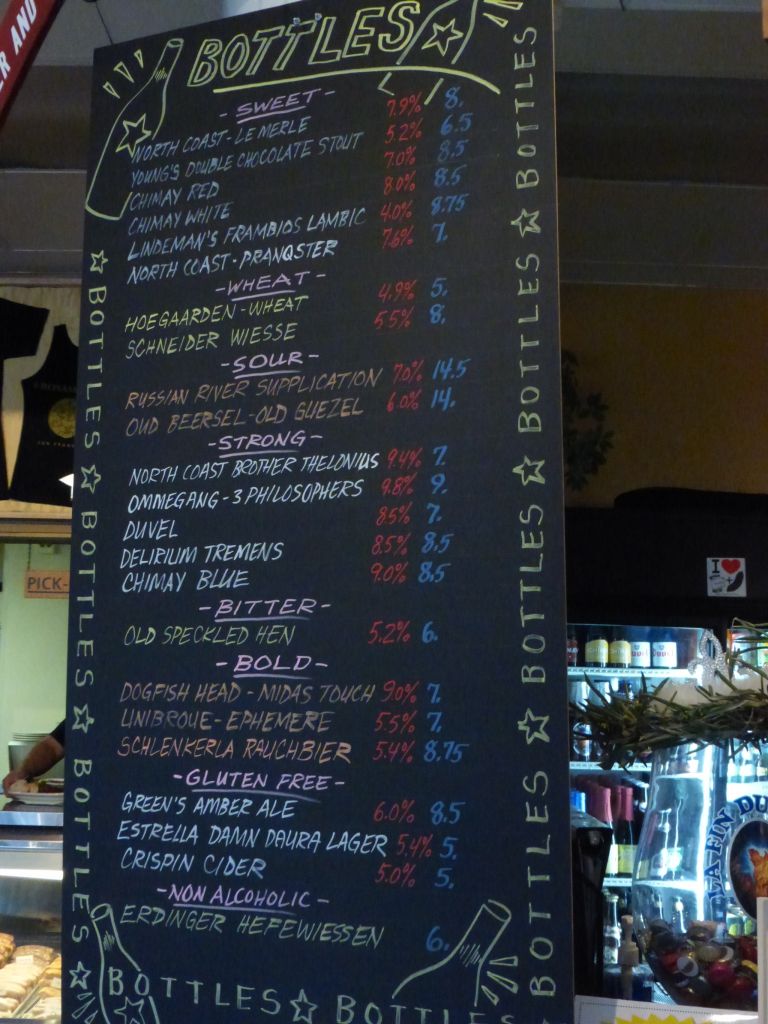 R AND
BOTTLES
-SWEET-
NORTH COAST-LE MERLE 7.9% 8.
YOUNG'S DOUBLE CHOCOLATE STOUT 5.2% 6.5
CHIMAY RED 7.0% 8.5
CHIMAY WHITE 8.0% 8.5
LINDEMAN'S FRAMBIOS LAMBIC 4.0% 8.75
NORTH COAST-PRANQSTER 7.6% 7.
-WHEAT-
HOEGAARDEN-WHEAT 4.9% 5.
SCHNEIDER WIESSE 5.5% 8.
-SOUR-
RUSSIAN RIVER SUPPLICATION 7.0% 14.5
OUD BEERSEL-OLD GUEZEL 6.0% 14.
-STRONG-
NORTH COAST BROTHER THELONIUS 9.4% 7.
OMMEGANG-3 PHILOSOPHERS 9.8% 9.
DUVEL 8.5% 7.
DELIRIUM TREMENS 8.5% 8.5
CHIMAY BLUE 9.0% 8.5
-BITTER-
OLD SPECKLED HEN 5.2% 6.
-BOLD-
DOGFISH HEAD-MIDAS TOUCH 9.0% 7.
UNIBROUE-EPHEMERE 5.5% 7.
SCHLENKERLA RAUCHBIER 5.4% 8.75
-GLUTEN FREE-
GREEN'S AMBER ALE 6.0% 8.5
ESTRELLA DAMN DAURA LAGER 5.4% 5.
CRISPIN CIDER 5.0% 5.
-NON ALCOHOLIC-
ERDINGER HEFEWIESSEN 6.
BOTTLES BOTTLES
BOTTLES BOTTLES BOTTLES BOTTLES
BOTTLES BOTTLES BOTTLES BOTTLES BOTTLES
PICK-
I
LA FIN DU